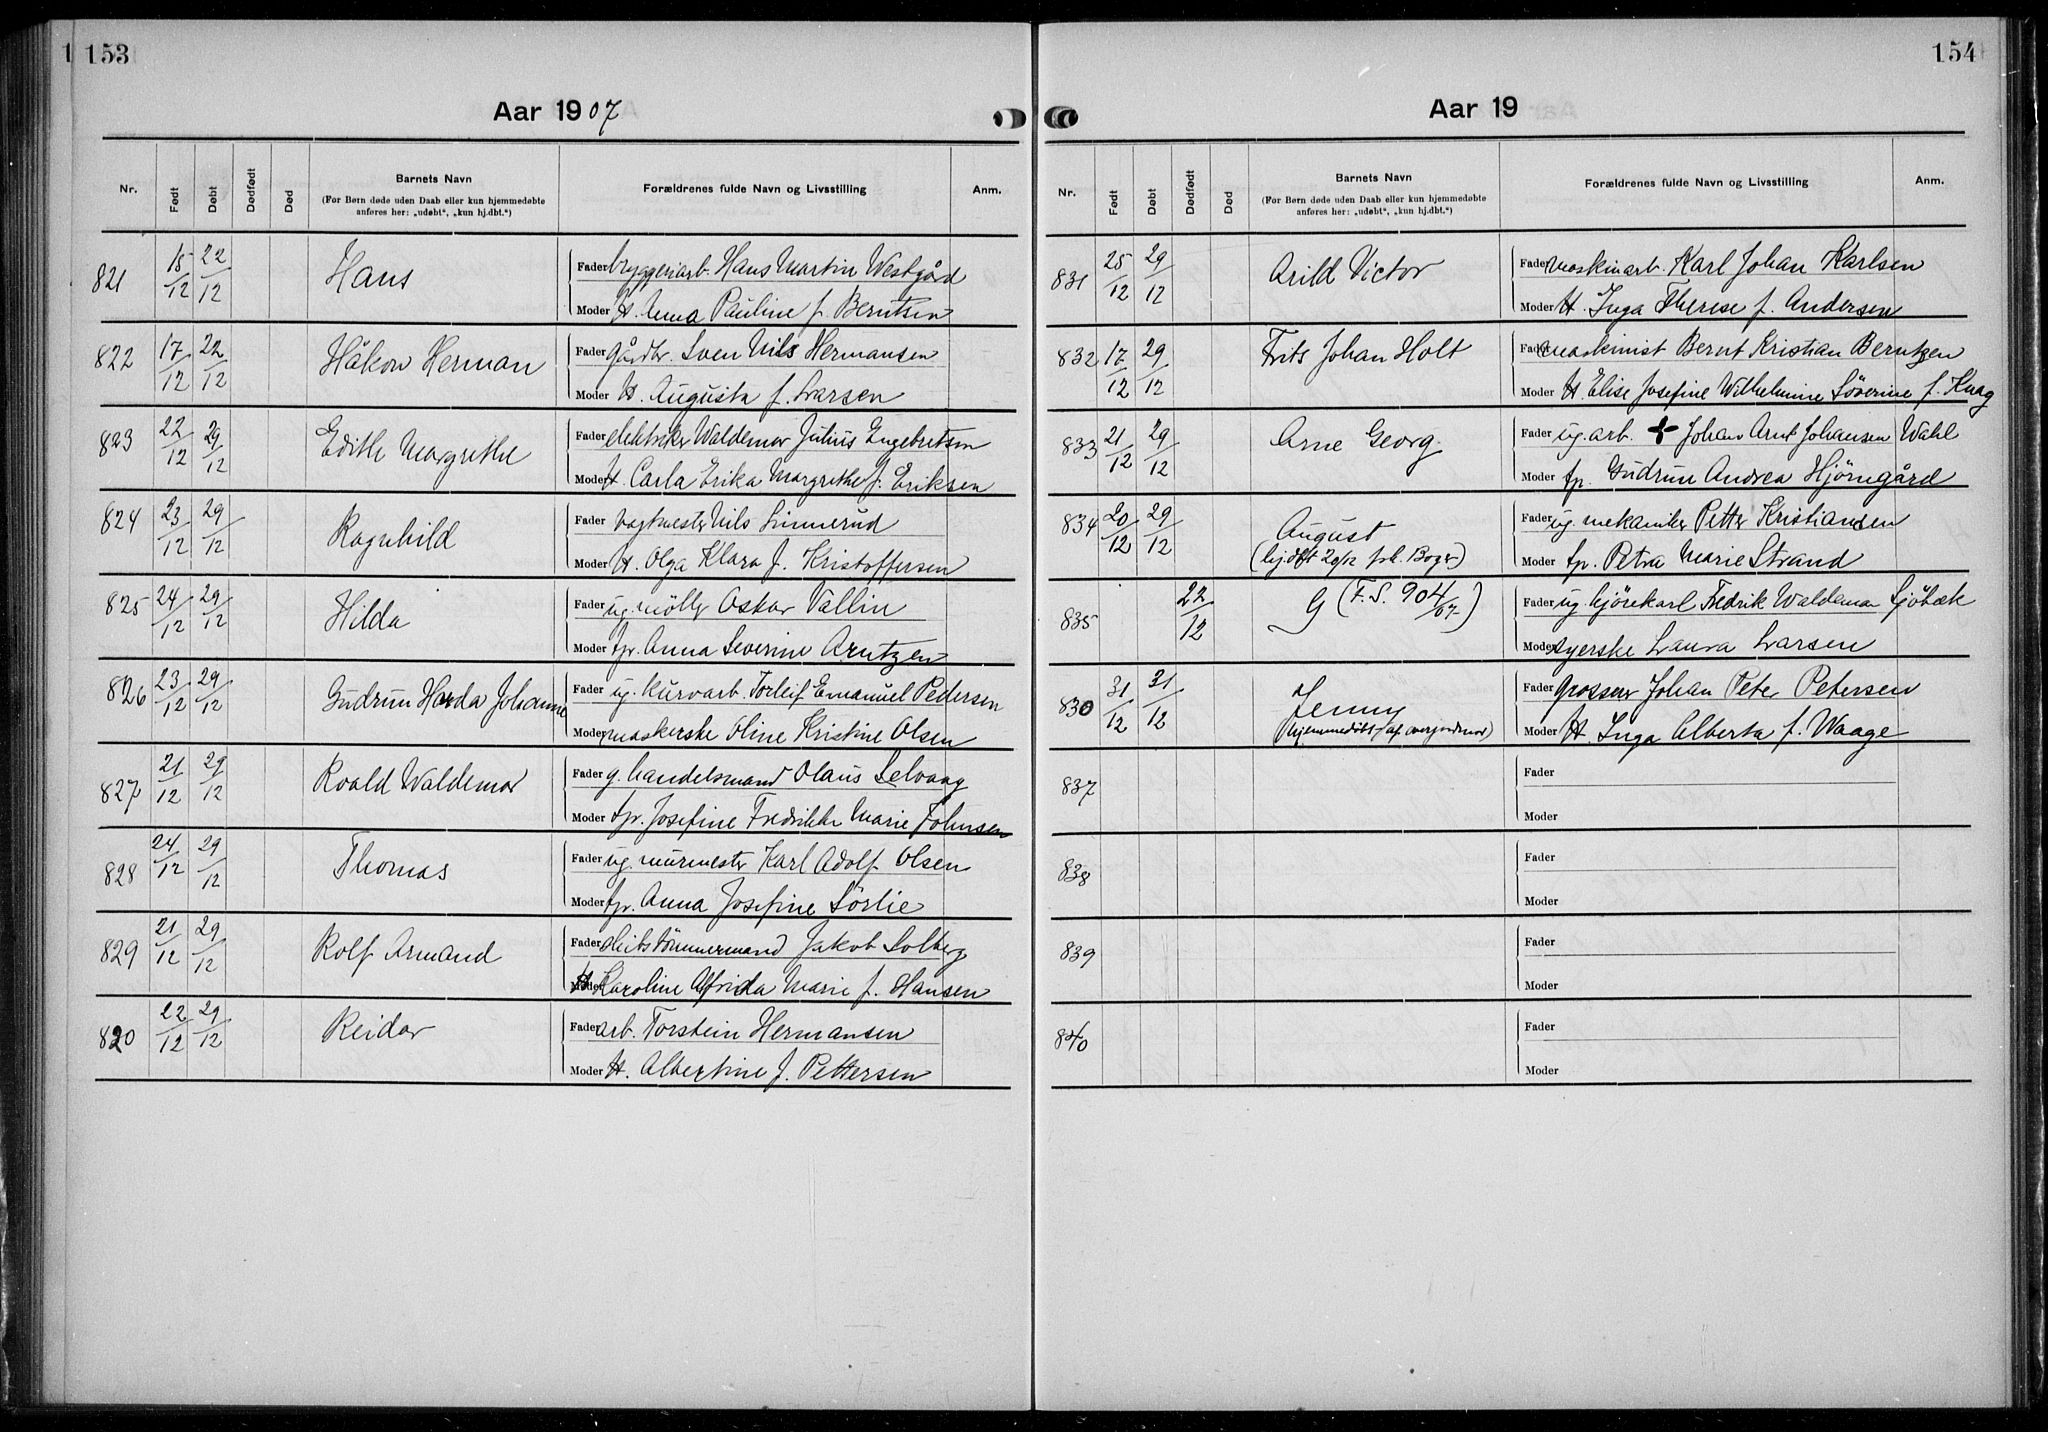 153
Aar 1907
Nr. Født Døbt Dødfødt Død Barnets Navn Forældrenes fulde Navn og Livsstilling Anm.
(For Børn døde uden Daab eller kun hjemmedøbte
anføres her: „udøbt“, „kun hj.dbt.“)
821 15/12 22/12 Hans Fader bryggeriarb. Hans Martin Westgård
Moder H. Anna Pauline f. Berntsen
822 17/12 22/12 Håkon Herman Fader gårdbr. Sven Nils Hermansen
Moder H. Augusta f. Larsen
823 22/12 29/12 Edith Margrethe Fader elektriker Waldemar Julius Engebretsen
Moder H. Carla Erika Margrethe f. Eriksen
824 23/12 29/12 Ragnhild Fader vagtmester Nils Linnerud
Moder H. Olga Klara f. Kristoffersen
825 24/12 29/12 Hilda Fader ug. möller Oskar Vallin
Moder fp. Anna Severine Arntzen
826 23/12 29/12 Gudrun Harda Johanne Fader ug. kurvarb. Torleif Emanuel Pedersen
Moder maskerske Oline Kristine Olsen
827 21/12 29/12 Roald Waldemar Fader g. handelsmand Olaus Selvaag
Moder fp. Josefine Fredrikke Marie Johnsen
828 24/12 29/12 Thomas Fader ug. murmester Karl Adolf Olsen
Moder fp. Anna Josefine Sörlie
829 21/12 29/12 Rolf Armand Fader skibstömmermand Jakob Solberg
Moder H Karoline Alfrida Marie f. Hansen
820 22/12 29/12 Reidar Fader arb. Torstein Hermansen
Moder H. Albertine f. Pettersen
154
Aar 19
Nr. Født Døbt Dødfødt Død Barnets Navn Forældrenes fulde Navn og Livsstilling Anm.
(For Børn døde uden Daab eller kun hjemmedøbte
anføres her: „udøbt“, „kun hj.dbt.“)
831 25/12 29/12 Arild Victor Fader maskinarb. Karl Johan Karlsen
Moder H. Inga Therese f. Andersen
832 17/12 29/12 Frits Johan Holt Fader maskinist Bernt Kristian Berntzen
Moder H. Elise Josefine Wilhelmine Söverine f. Knag
833 21/12 29/12 Arne Georg Fader ug. arb. Johan Arnt Johansen Wahl
Moder fp. Gudrun Andrea Hjörnegård
834 20/12 29/12 August Fader ug. mekaniker Petter Kristiansen
(hj.dbt 20/12 Moder fp. Petra Marie Strand
835 22/12 G (F.S. 904/07) Fader ug. kjörekarl Fredrik Waldemar Sjöbæk
Moder syerske Laura Larsen
830 31/12 31/12 Jenny Fader grosserer Johan Peter Petersen
(hjemmedöbt af overjordmor) Moder H. Inga Alberta f. Waage
837 Fader
Moder
838 Fader
Moder
839 Fader
Moder
840 Fader
Moder